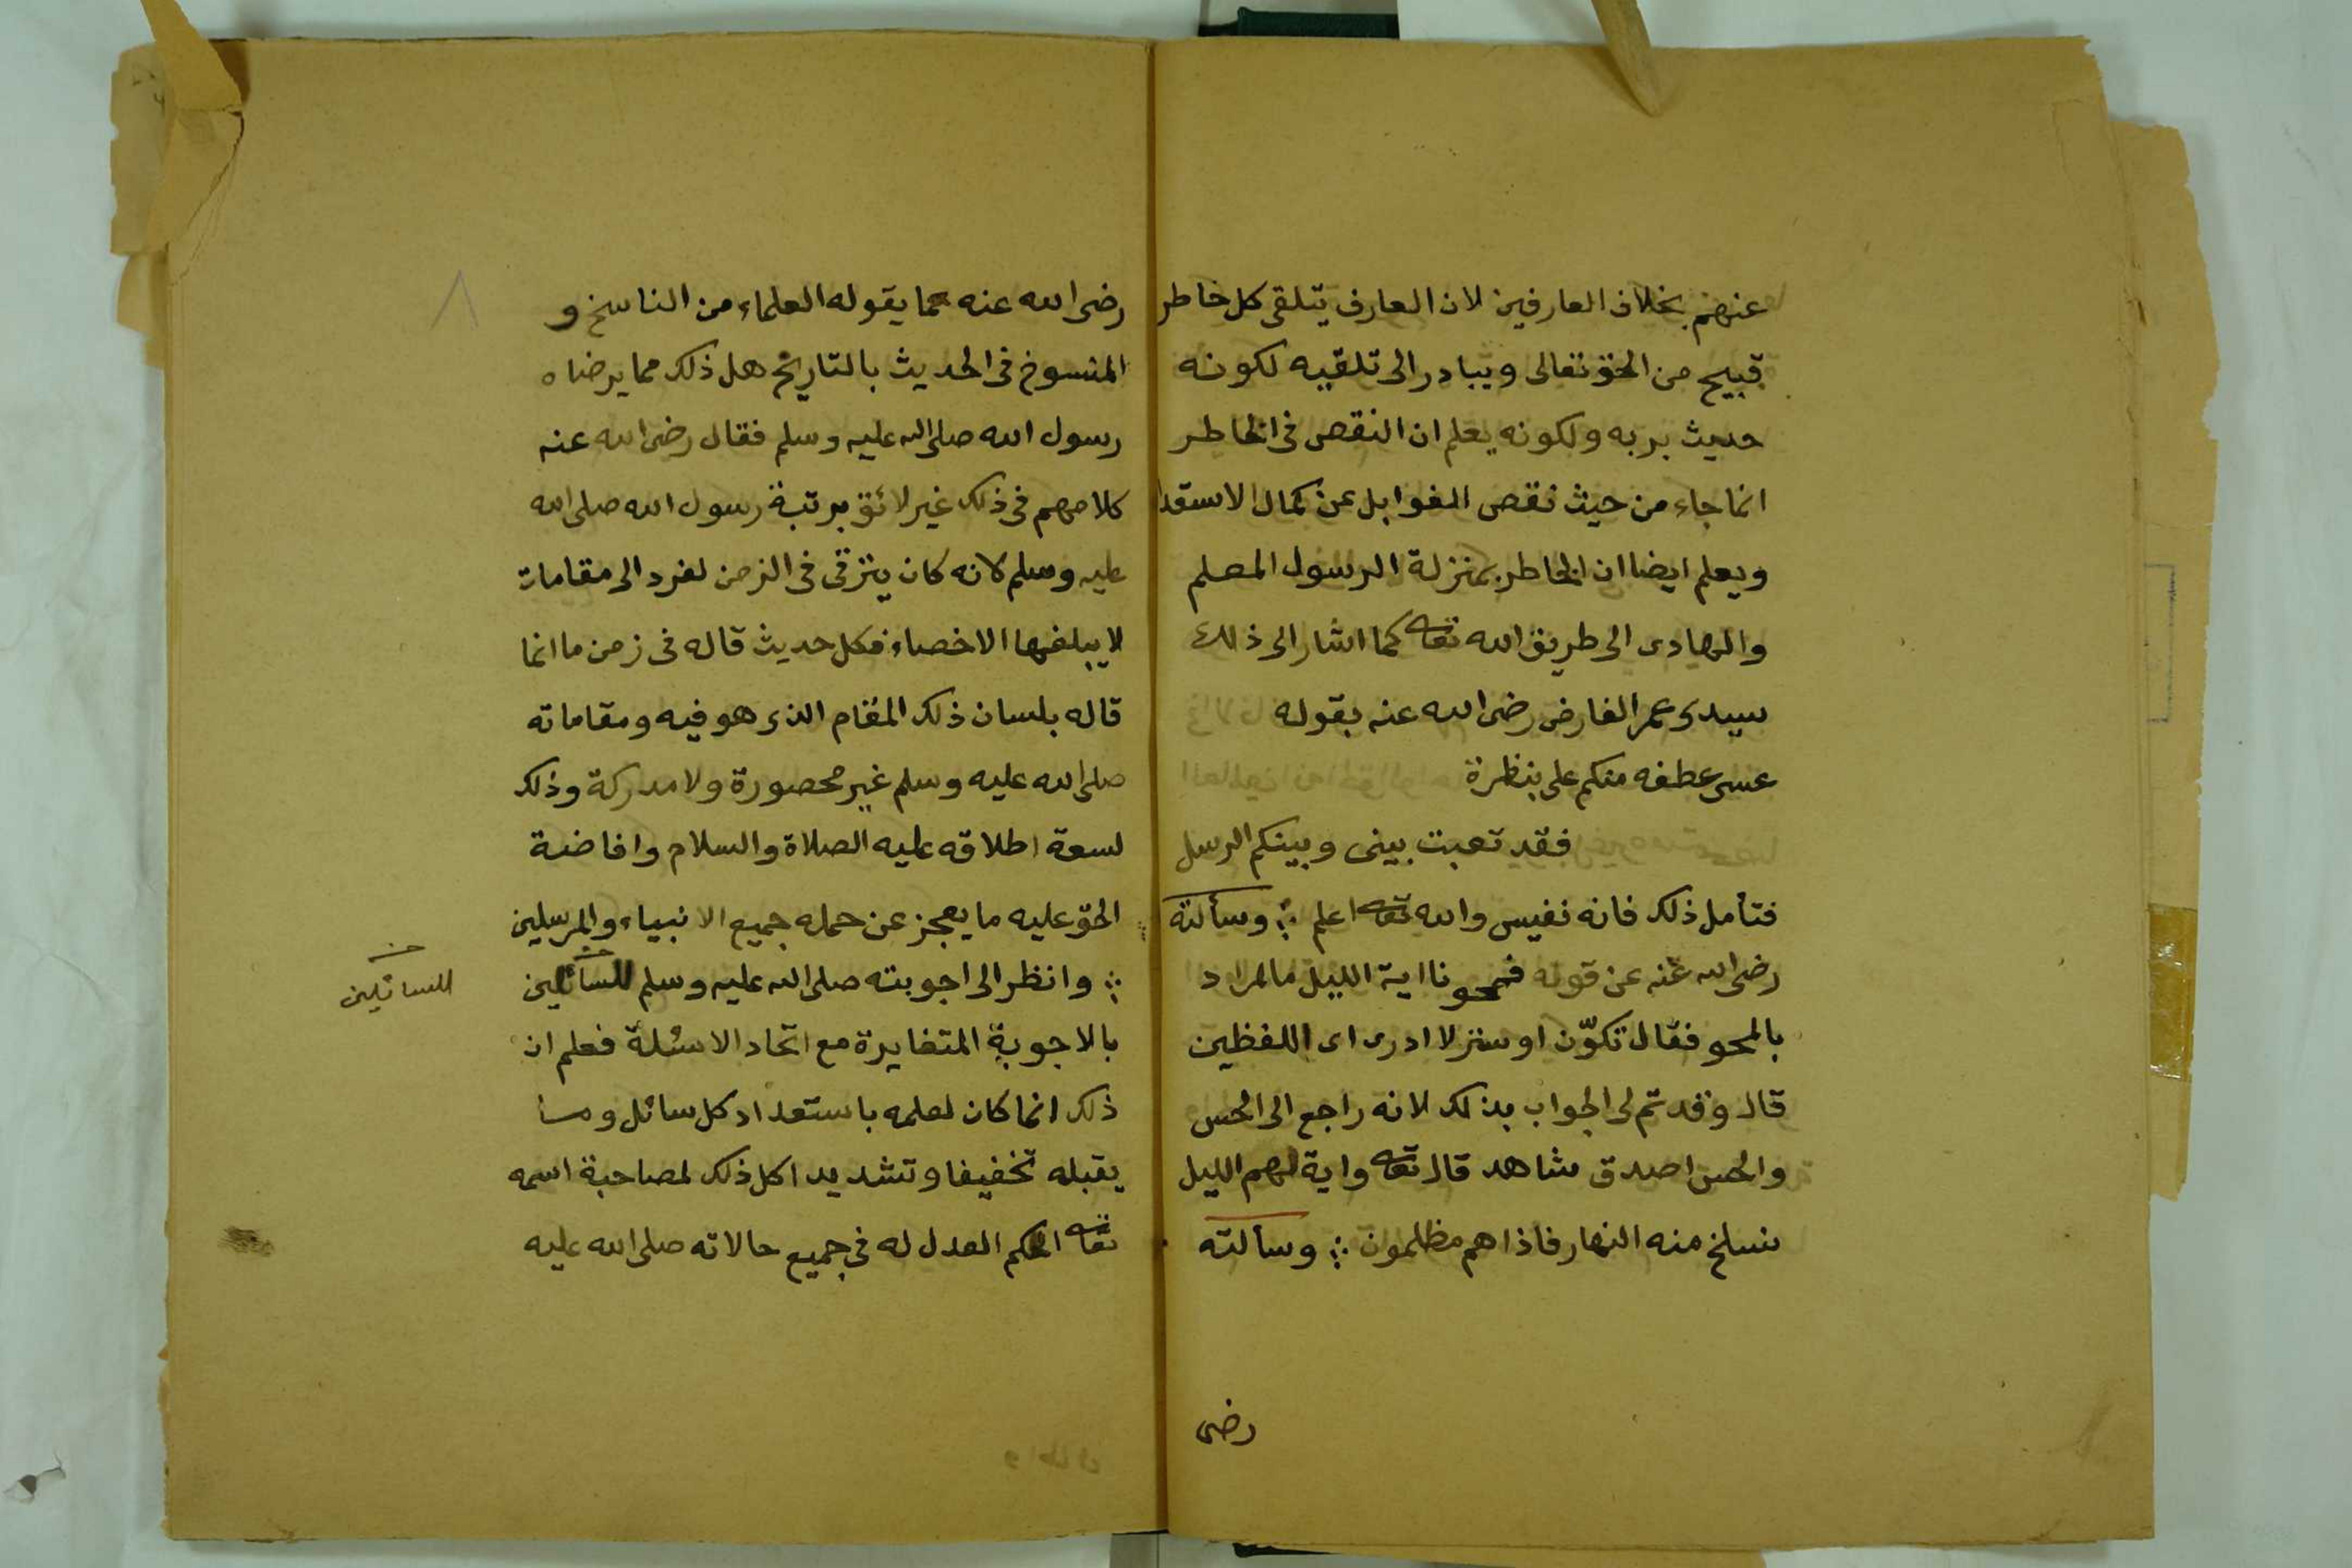 عنهم بخلاف العارفين لان العارف يتلقى كل خاطر
قبيح من الحق تعالى ويبادر الى تلقيه لكونه
حديث بربه ولكونه يعلم ان النقص فى الخاطر
انما جاء من حيث نقص القوابل عن كمال الاستعدا
ويعلم ايضا ان الخاطر بمنزلة الرسول المعلم
والهادى الى طريق الله تعا كما اشار الى ذلك
سيدى عمر الفارض رضى الله عنه بقوله
عسى عطفه منكم على بنظرة
فقد تعبت بينى وبينكم الرسل
فتأمل ذلك فانه نفيس والله تعا اعلم ؞ وسألته
رضى الله عنه عن قوله فمحونا اية الليل ما المراد
بالمحو فقال تكوّن او ستر لا ادرى اى اللفظين
قال وقد تم لى الجواب بذلك لانه راجع الى الحس
والحس اصدق شاهد قال تعا واية لهم الليل
نسلخ منه النهار فاذا هم مظلمون ؞ وسألته
رضى
٨
رضى الله عنه عما يقوله العلماء من الناسخ و
المنسوخ فى الحديث بالتاريخ هل ذلك مما يرضاه
رسول الله صلى الله عليه وسلم فقال رضى الله عنه
كلامهم فى ذلك غير لائق برتبة رسول الله صلى الله
عليه وسلم لانه كان يترقى فى الزمن لفرد الى مقامات
لا يبلغها الاخصاء فكل حديث قاله فى زمن ما انما
قاله بلسان ذلك المقام الذى هو فيه ومقاماته
صلى الله عليه وسلم غير محصورة ولا مدركة وذلك
لسعة اطلاقه عليه الصلاة والسلام وافاضة
الحق عليه ما يعجز عن حمله جميع الانبياء والمرسلين
؞ وانظر الى اجوبته صلى الله عليه وسلم للسائلين
للسائلين
بالاجوبة المتغايرة مع اتحاد الاسئلة فعلم ان
ذلك انما كان لعلمه باستعداد كل سائل وما
يقبله تخفيفا وتشديدا كل ذلك لمصاحبة اسمه
تعا الحكم العدل له فى جميع حالاته صلى الله عليه